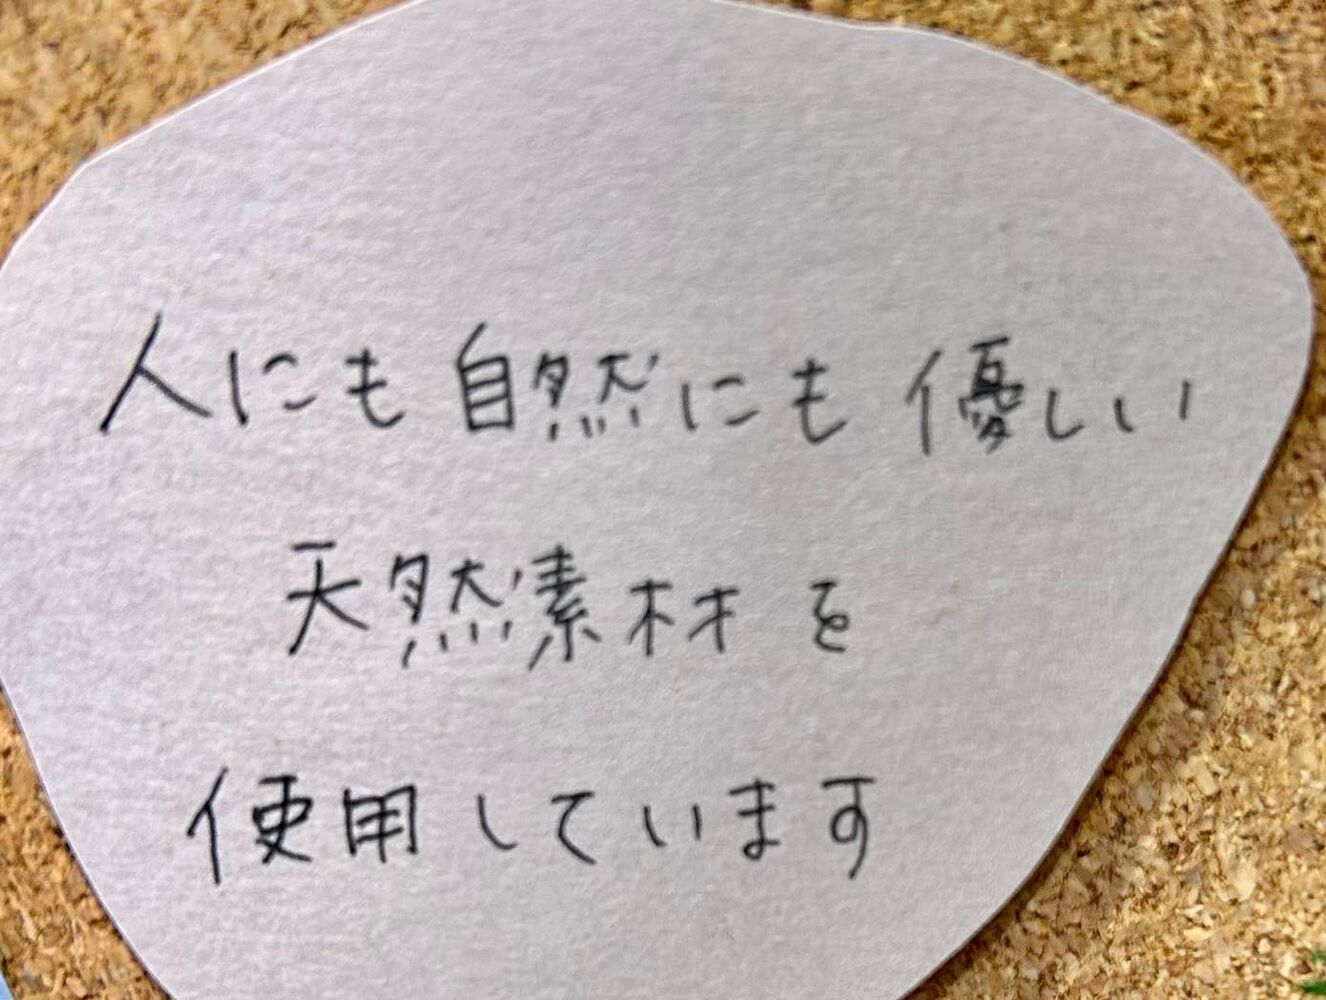 人にも自然にも優しい
天然素材を
使用しています